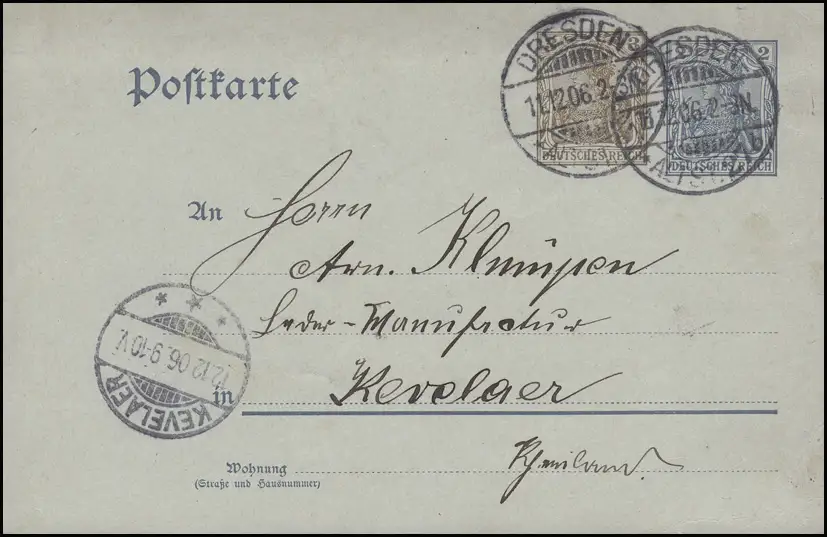 Postkarte
DRESDEN
11.12.06.2-3N.
DRESDEN
ALTST.
3
2
DEUTSCHES REICH
DEUTSCHES REICH
An Herrn
Arn. Klümpen
Leder-Manufactur
in Kevelaer
Rheinland
Wohnung
(Straße und Hausnummer)
KEVELAER
12.12.06.9-10V.